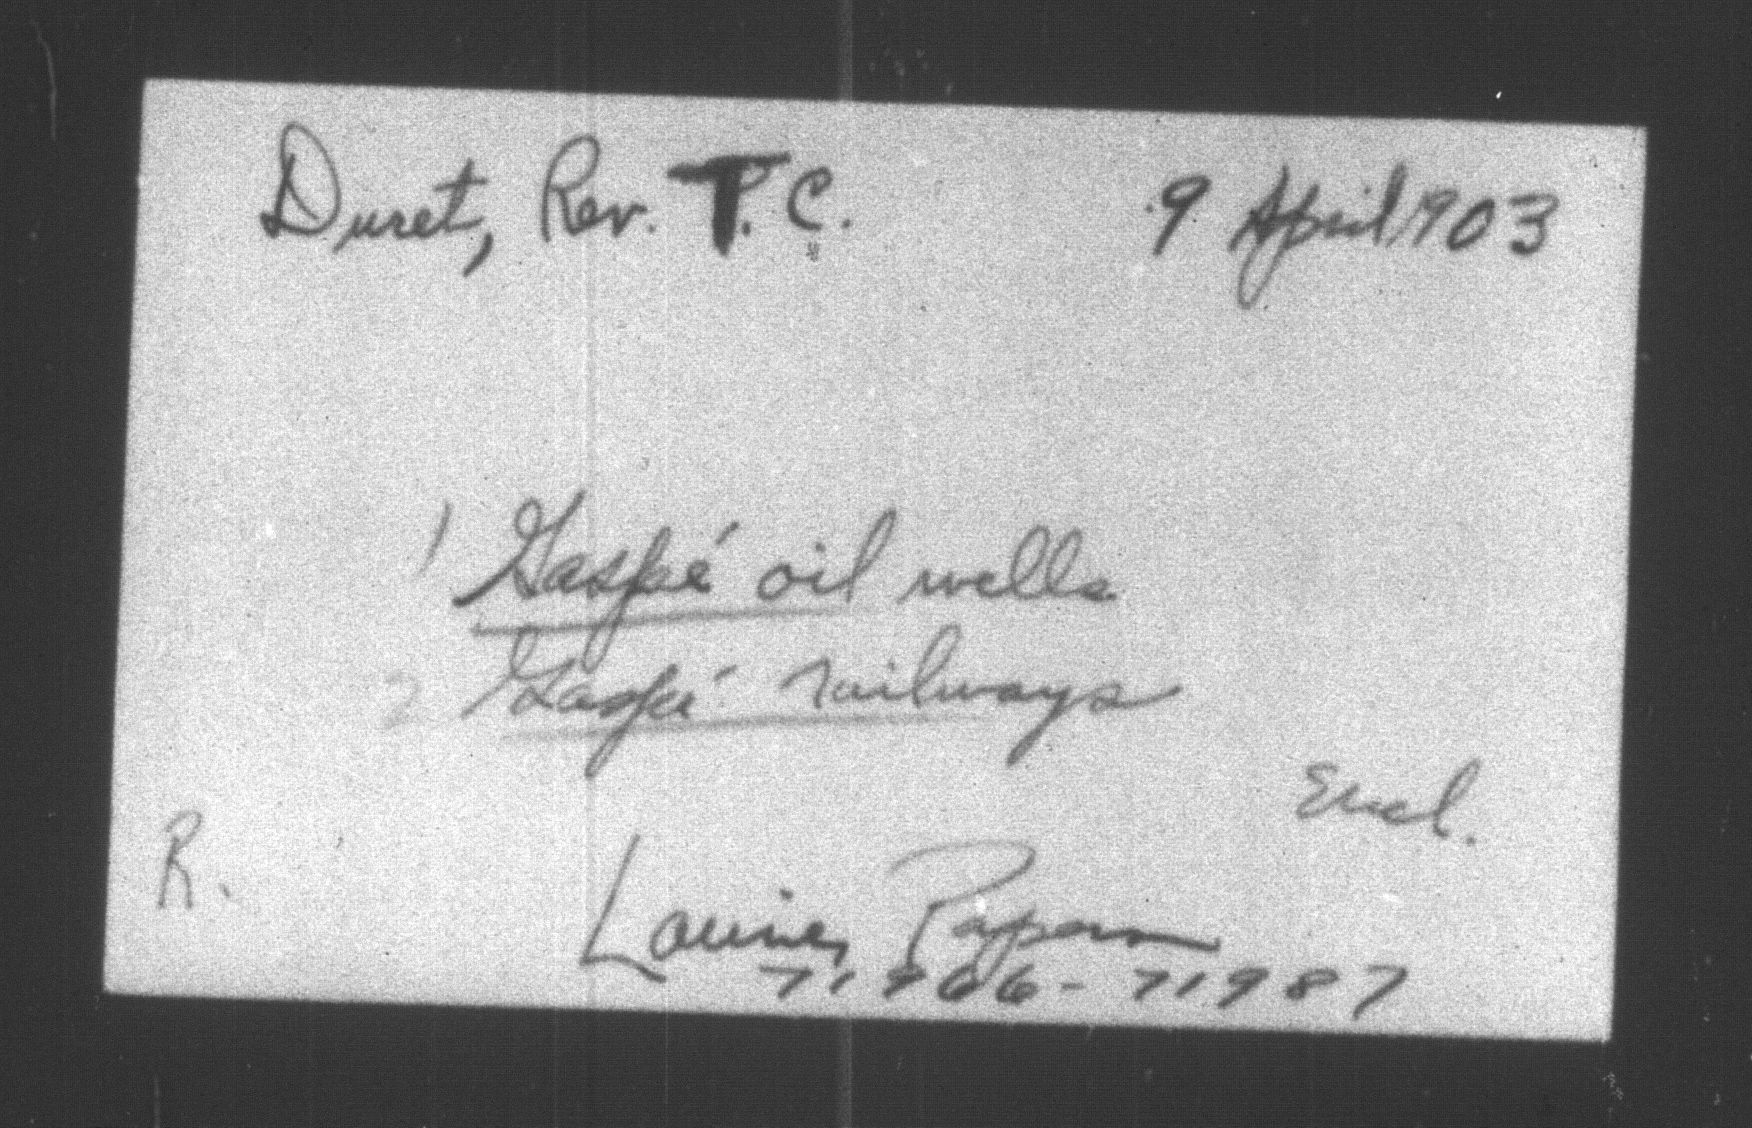 Duret, Rev. T. C. 9 April 1903
1 Gaspé oil wells
2 Gaspé railways
Encl.
R.
Laurier Papers
71966-71987